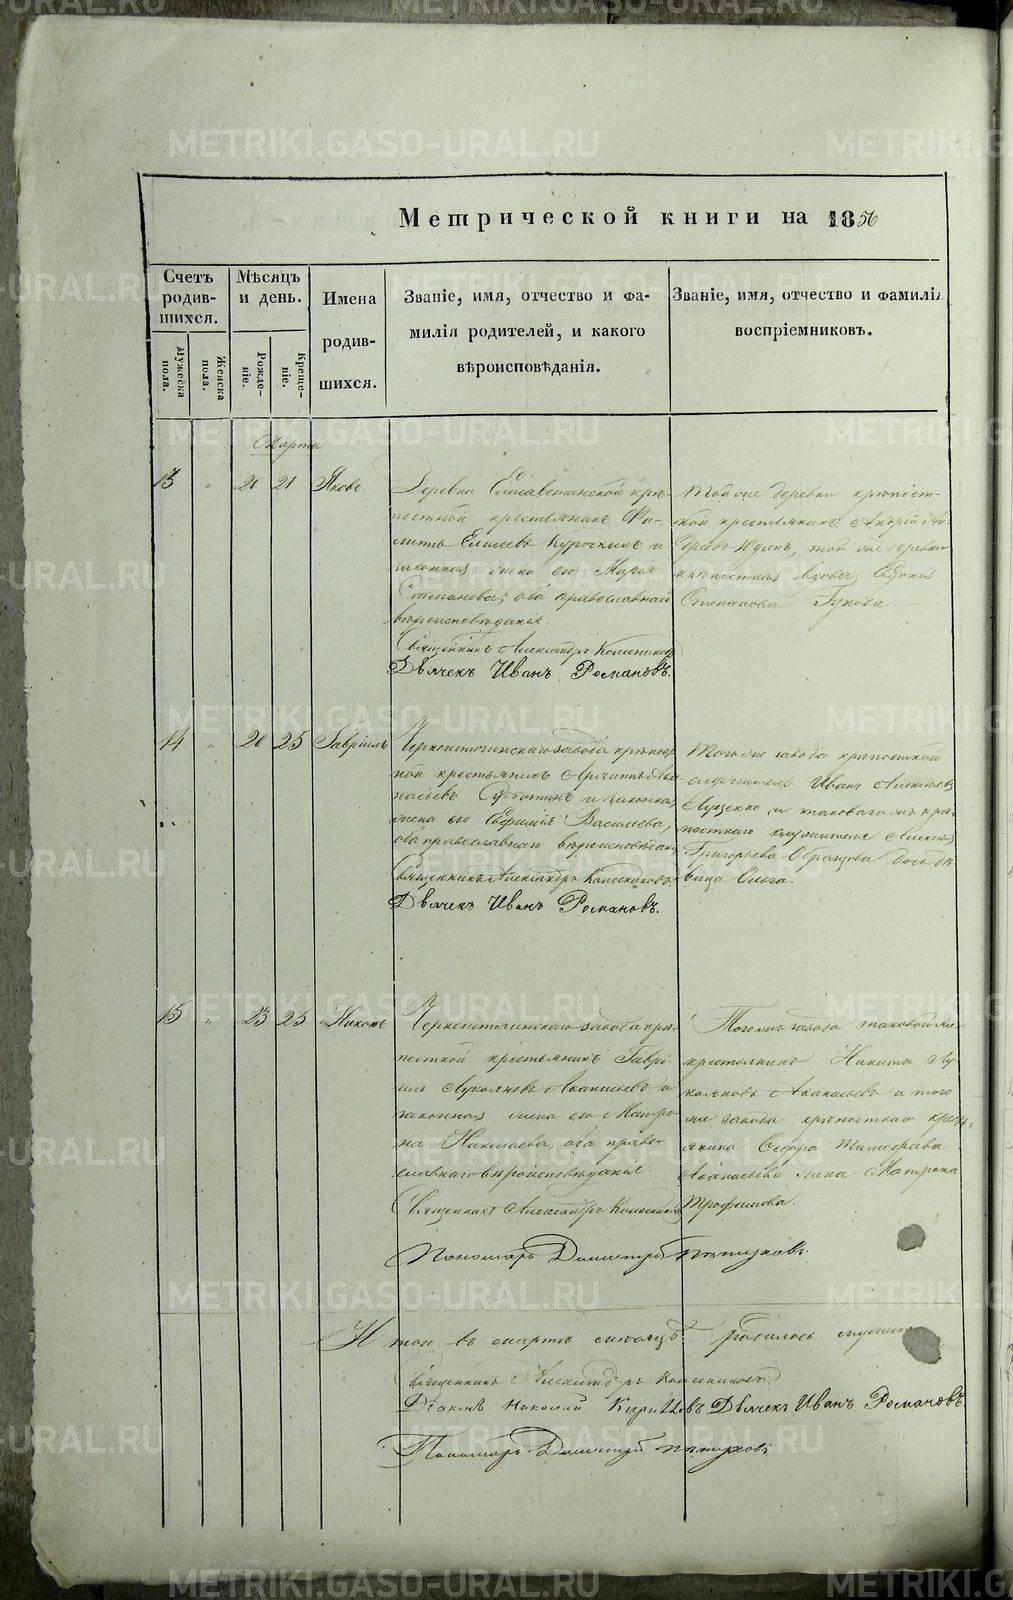 METRIKI.GASO-URAL.RU
Метрической книги на 1856
Счетъ родив-шихся.
Мужеска пола.
Женска пола.
Мѣсяцъ и день.
Рожде-ніе.
Креще-ніе.
Имена родив-шихся.
Званіе, имя, отчество и фа-
милія родителей, и какого
вѣроисповѣданія.
Званіе, имя, отчество и фамилія
воспріемниковъ.
Марта
13 " 20 21 Яковъ
Деревни Елисаветинской крѣ-
постный крестьянинъ
Елисеевъ Курочкинъ и
законная жена его Марья
Степанова, оба православнаго
вѣроисповѣданія.
Священникъ Александръ
Дьячекъ Иванъ Романовъ.
Той же деревни крѣпост-
ной крестьянинъ Андрей
той же деревни
крѣпостная вдова
Степанова
14 " 20 25 Гавріилъ
Черноисточинскаго завода крѣпост
ной крестьянинъ
и законная
жена его Евфимія Василева,
оба православнаго вѣроисповѣдан
Священникъ Александръ
Дьячекъ Иванъ Романовъ.
Того же завода крѣпостной
служитель Иванъ Алексѣевъ
и таковаго же крѣ-
постнаго служителя Алексѣя
Григорьева Образцова дочь дѣ-
вица Ольга.
15 " 23 25 Никонъ
Черноисточинскаго завода крѣ-
постной крестьянинъ Гаврі-
илъ Лукояновъ Аѳанасьевъ и
законная жена его Матро-
на Николаева, оба право-
славнаго вѣроисповѣданія.
Священникъ Александръ
Пономарь Димитрій Пѣтуховъ.
Того же завода таковой же
крестьянинъ Никита Лу-
кояновъ Аѳанасьевъ и того
же завода крѣпостнаго кресть-
янина Ѳедора Тимофѣева
Аѳанасьева жена Матрона
Трофимова.
Итого въ мартѣ мѣсяцѣ родилось
Священникъ Александръ
Діаконъ Николай Дьячекъ Иванъ Романовъ.
Пономарь Димитрій Пѣтуховъ.